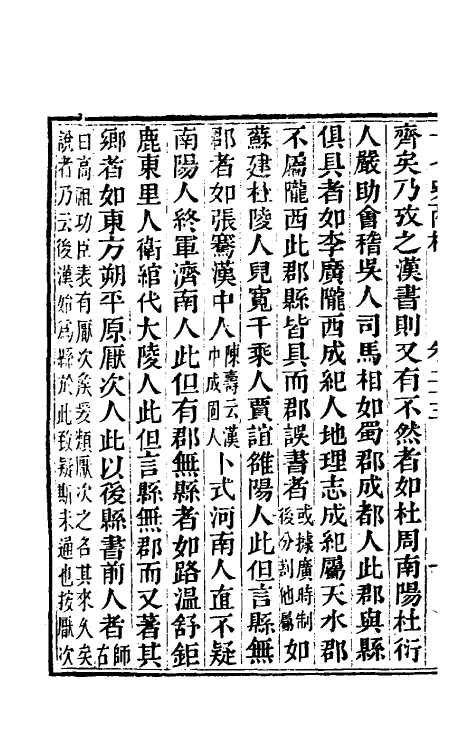 齊矣乃攷之漢書則又有不然者如杜周南陽杜衍
人嚴助會稽吳人司馬相如蜀郡成都人此郡與縣
俱具者如李廣隴西成紀人地理志成紀屬天水郡
不屬隴西此郡縣皆具而郡誤書者或據廣時制後分割他屬如
蘇建杜陵人兒寬千乘人賈誼雒陽人此但言縣無
郡者如張騫漢中人陳壽云漢中成固人卜式河南人直不疑
南陽人終軍濟南人此但有郡無縣者如路溫舒鉅
鹿東里人衛綰代大陵人此但言縣無郡而又著其
鄉者如東方朔平原厭次人此以後縣書前人者師古
曰高祖功臣表有厭次侯爰類厭次之名其來久矣
說者乃云後漢始爲縣於此致疑斯未通也按厭次